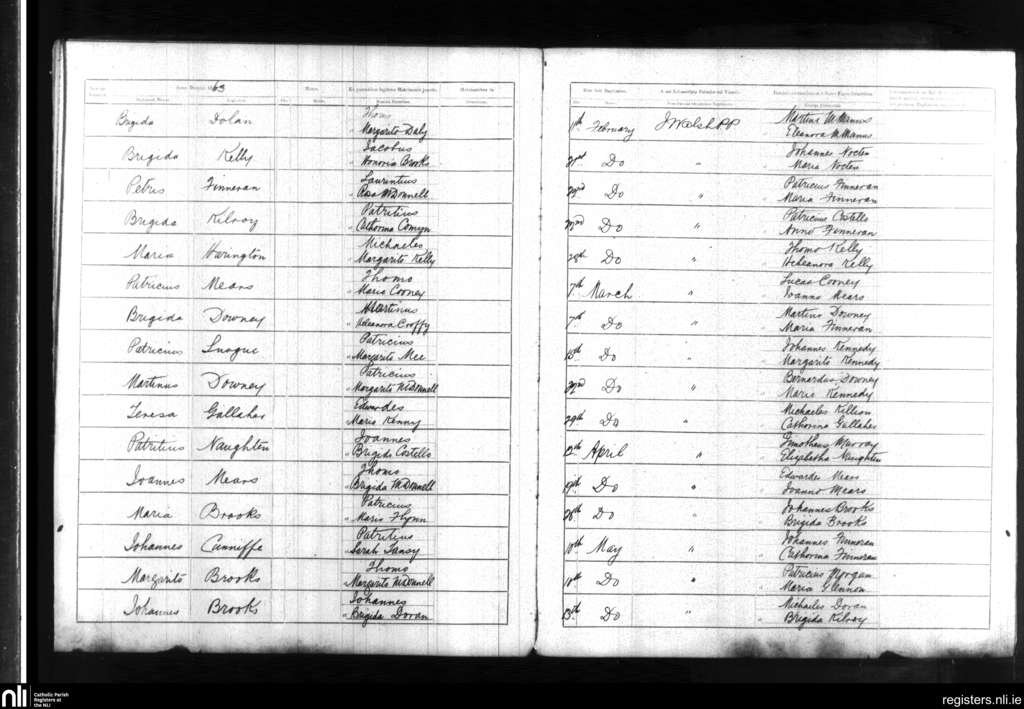 63
Brigida Dolan Thoms 11th February J Walsh PP Martinus McManus
Margarita Daly Eleanora McManus
Brigida Kelly Jacobus 21st Do " Johannes Nocten
" Honoria Brooks Maria Nocten
Petris Finneran Laurintius 22nd Do " Patricius Finneran
" Rosa McDonnell Maria Finneran
Brigida Kilroy Patritius 22nd Do " Patricius Costello
" Catherina Comyn Anno Finneran
Maria Harington Michaeles 28th Do " Thomo Kelly
" Margarita Kelly Heleanora Kelly
Patricius Mears Thoms 7th March " Lucas Cooney
" Maria Cooney Ioanna Mears
Brigida Downey Martinus 7th Do " Martinus Downey
" Heleanora Croffy Maria Finneran
Patricius Patricius 15th Do " Johannes Kennedy
" Margarita Mee Margarita Kennedy
Martinus Downey Patricius 22nd Do " Bernardus Downey
" Margarita McDonnell Maria Kennedy
Teresa Gallaher Edwardes 29th Do " Michaeles Killian
Maria Kenny Catherina Gallaher
Patritius Naughten Joannes 12th April " Timotheus Murray
" Brigida Costello Elizabetha Naughten
Ioannes Mears Thoms 19th Do " Edwardes Mears
" Brigida McDonnell Ioanna Mears
Maria Brooks Patricius 26th Do " Johannes Brooks
" Maria Flynn Brigida Brooks
Iohannes Cunniffe Patritius 10th May " Johannes Finneran
" Sarah Tansy Catherina Finneran
Margarita Brooks Thoms 10th Do " Patricius Morgan
Margarita McDonnell Maria Glennon
Iohannes Brooks Iohannes 13th Do " Michaeles Doran
" Brigida Doran Brigida Kilroy
nli Catholic Parish
Registers at
the NLI
registers.nli.ie